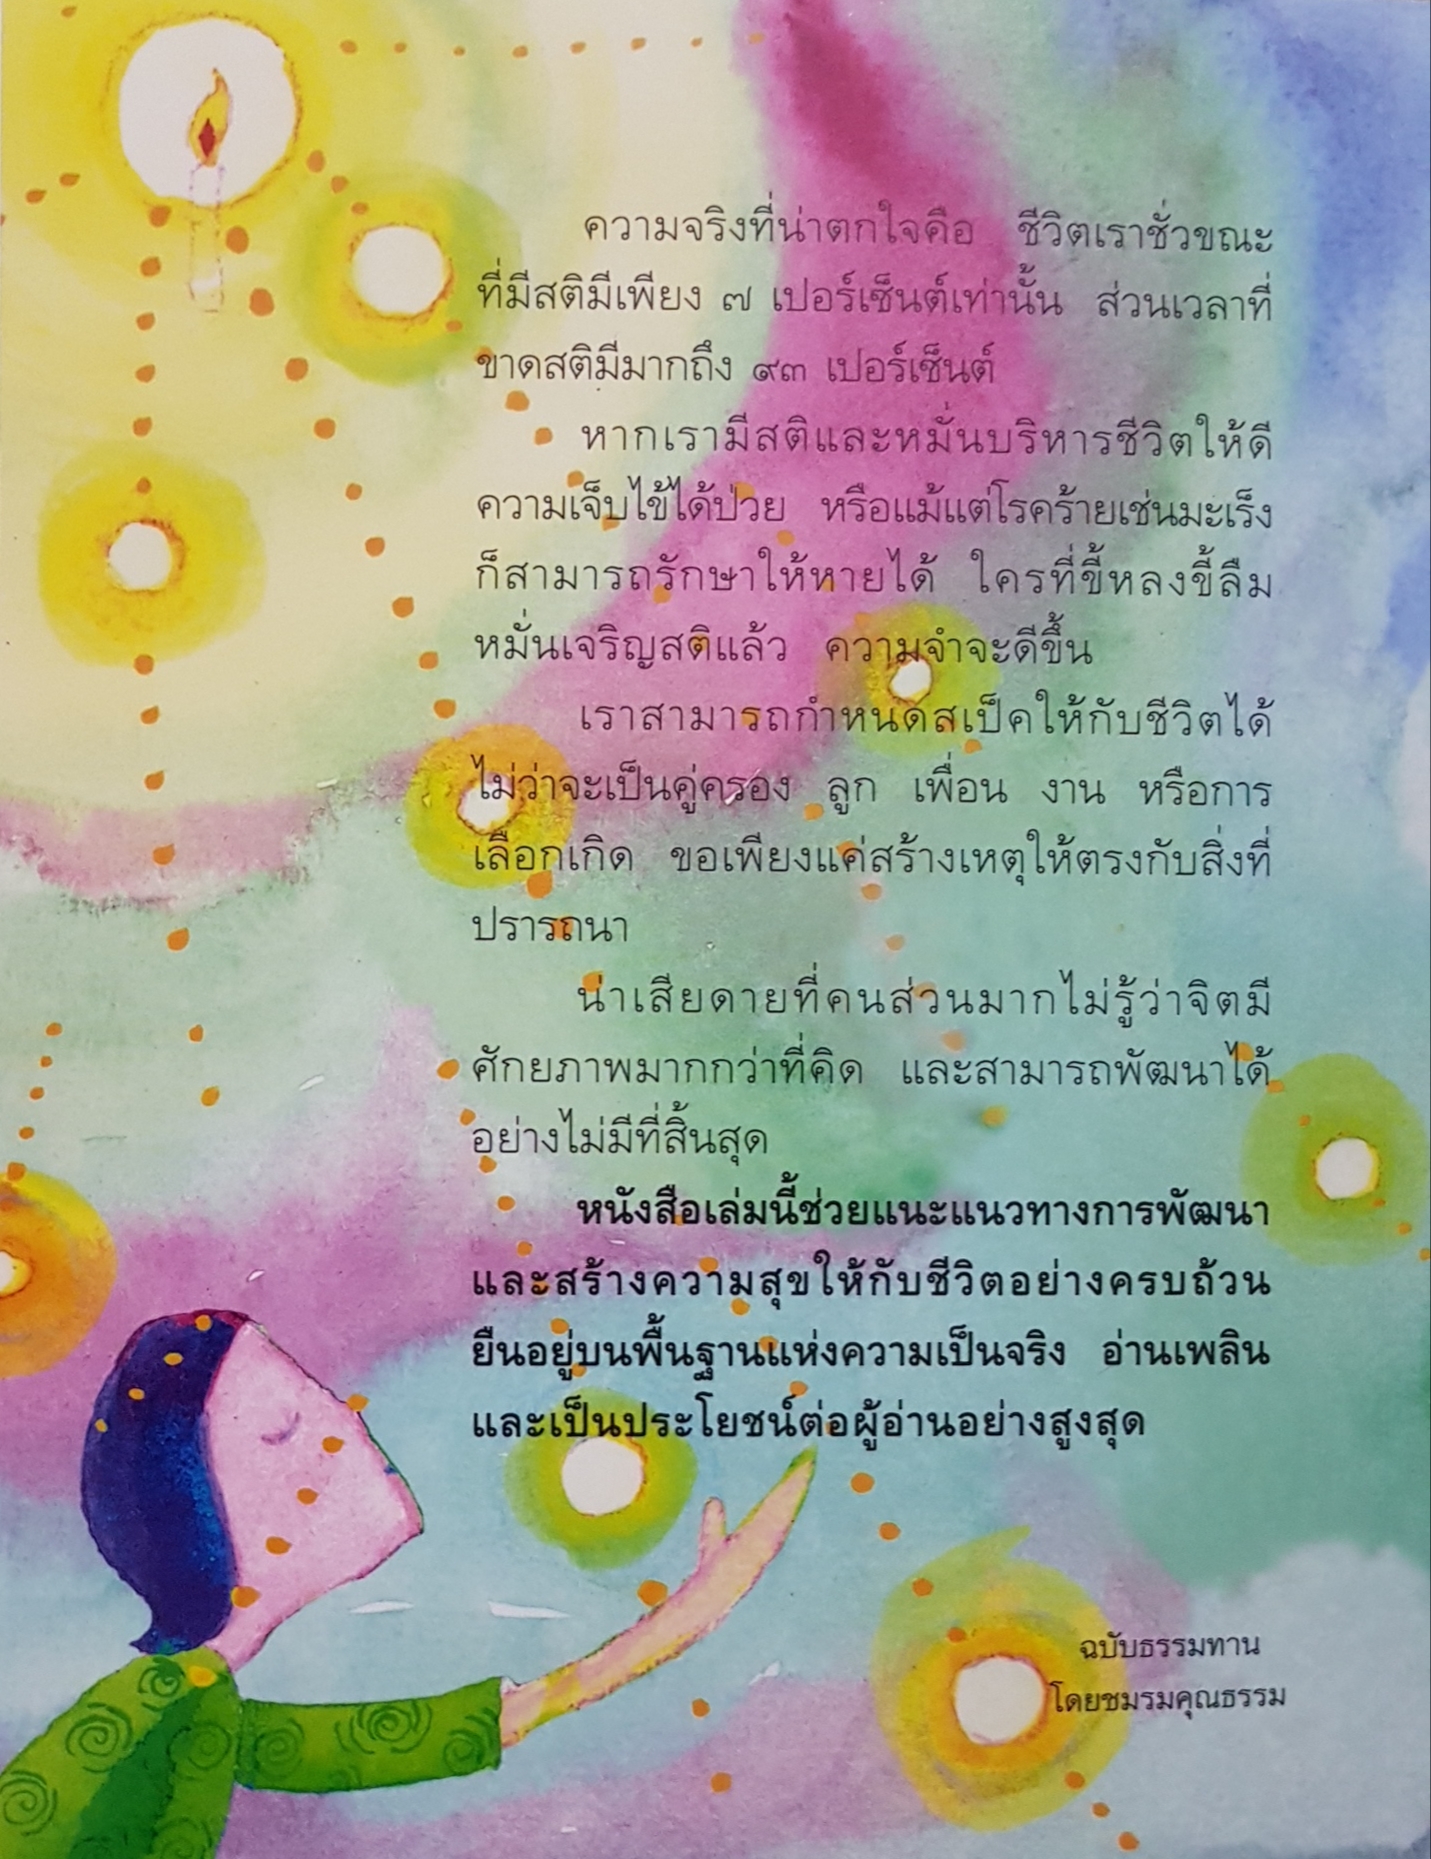 ความจริงที่น่าตกใจคือ ชีวิตเราชั่วขณะ
ที่มีสติมีเพียง ๗ เปอร์เซ็นต์เท่านั้น ส่วนเวลาที่
ขาดสติมีมากถึง ๙๓ เปอร์เซ็นต์
หากเรามีสติและหมั่นบริหารชีวิตให้ดี
ความเจ็บไข้ได้ป่วย หรือแม้แต่โรคร้ายเช่นมะเร็ง
ก็สามารถรักษาให้หายได้ ใครที่ขี้หลงขี้ลืม
หมั่นเจริญสติแล้ว ความจำจะดีขึ้น
เราสามารถกำหนดสเป็คให้กับชีวิตได้
ไม่ว่าจะเป็นคู่ครอง ลูก เพื่อน งาน หรือการ
เลือกเกิด ขอเพียงแค่สร้างเหตุให้ตรงกับสิ่งที่
ปรารถนา
น่าเสียดายที่คนส่วนมากไม่รู้ว่าจิตมี
ศักยภาพมากกว่าที่คิด และสามารถพัฒนาได้
อย่างไม่มีที่สิ้นสุด
หนังสือเล่มนี้ช่วยแนะแนวทางการพัฒนา
และสร้างความสุขให้กับชีวิตอย่างครบถ้วน
ยืนอยู่บนพื้นฐานแห่งความเป็นจริง อ่านเพลิน
และเป็นประโยชน์ต่อผู้อ่านอย่างสูงสุด
ฉบับธรรมทาน
โดยชมรมคุณธรรม